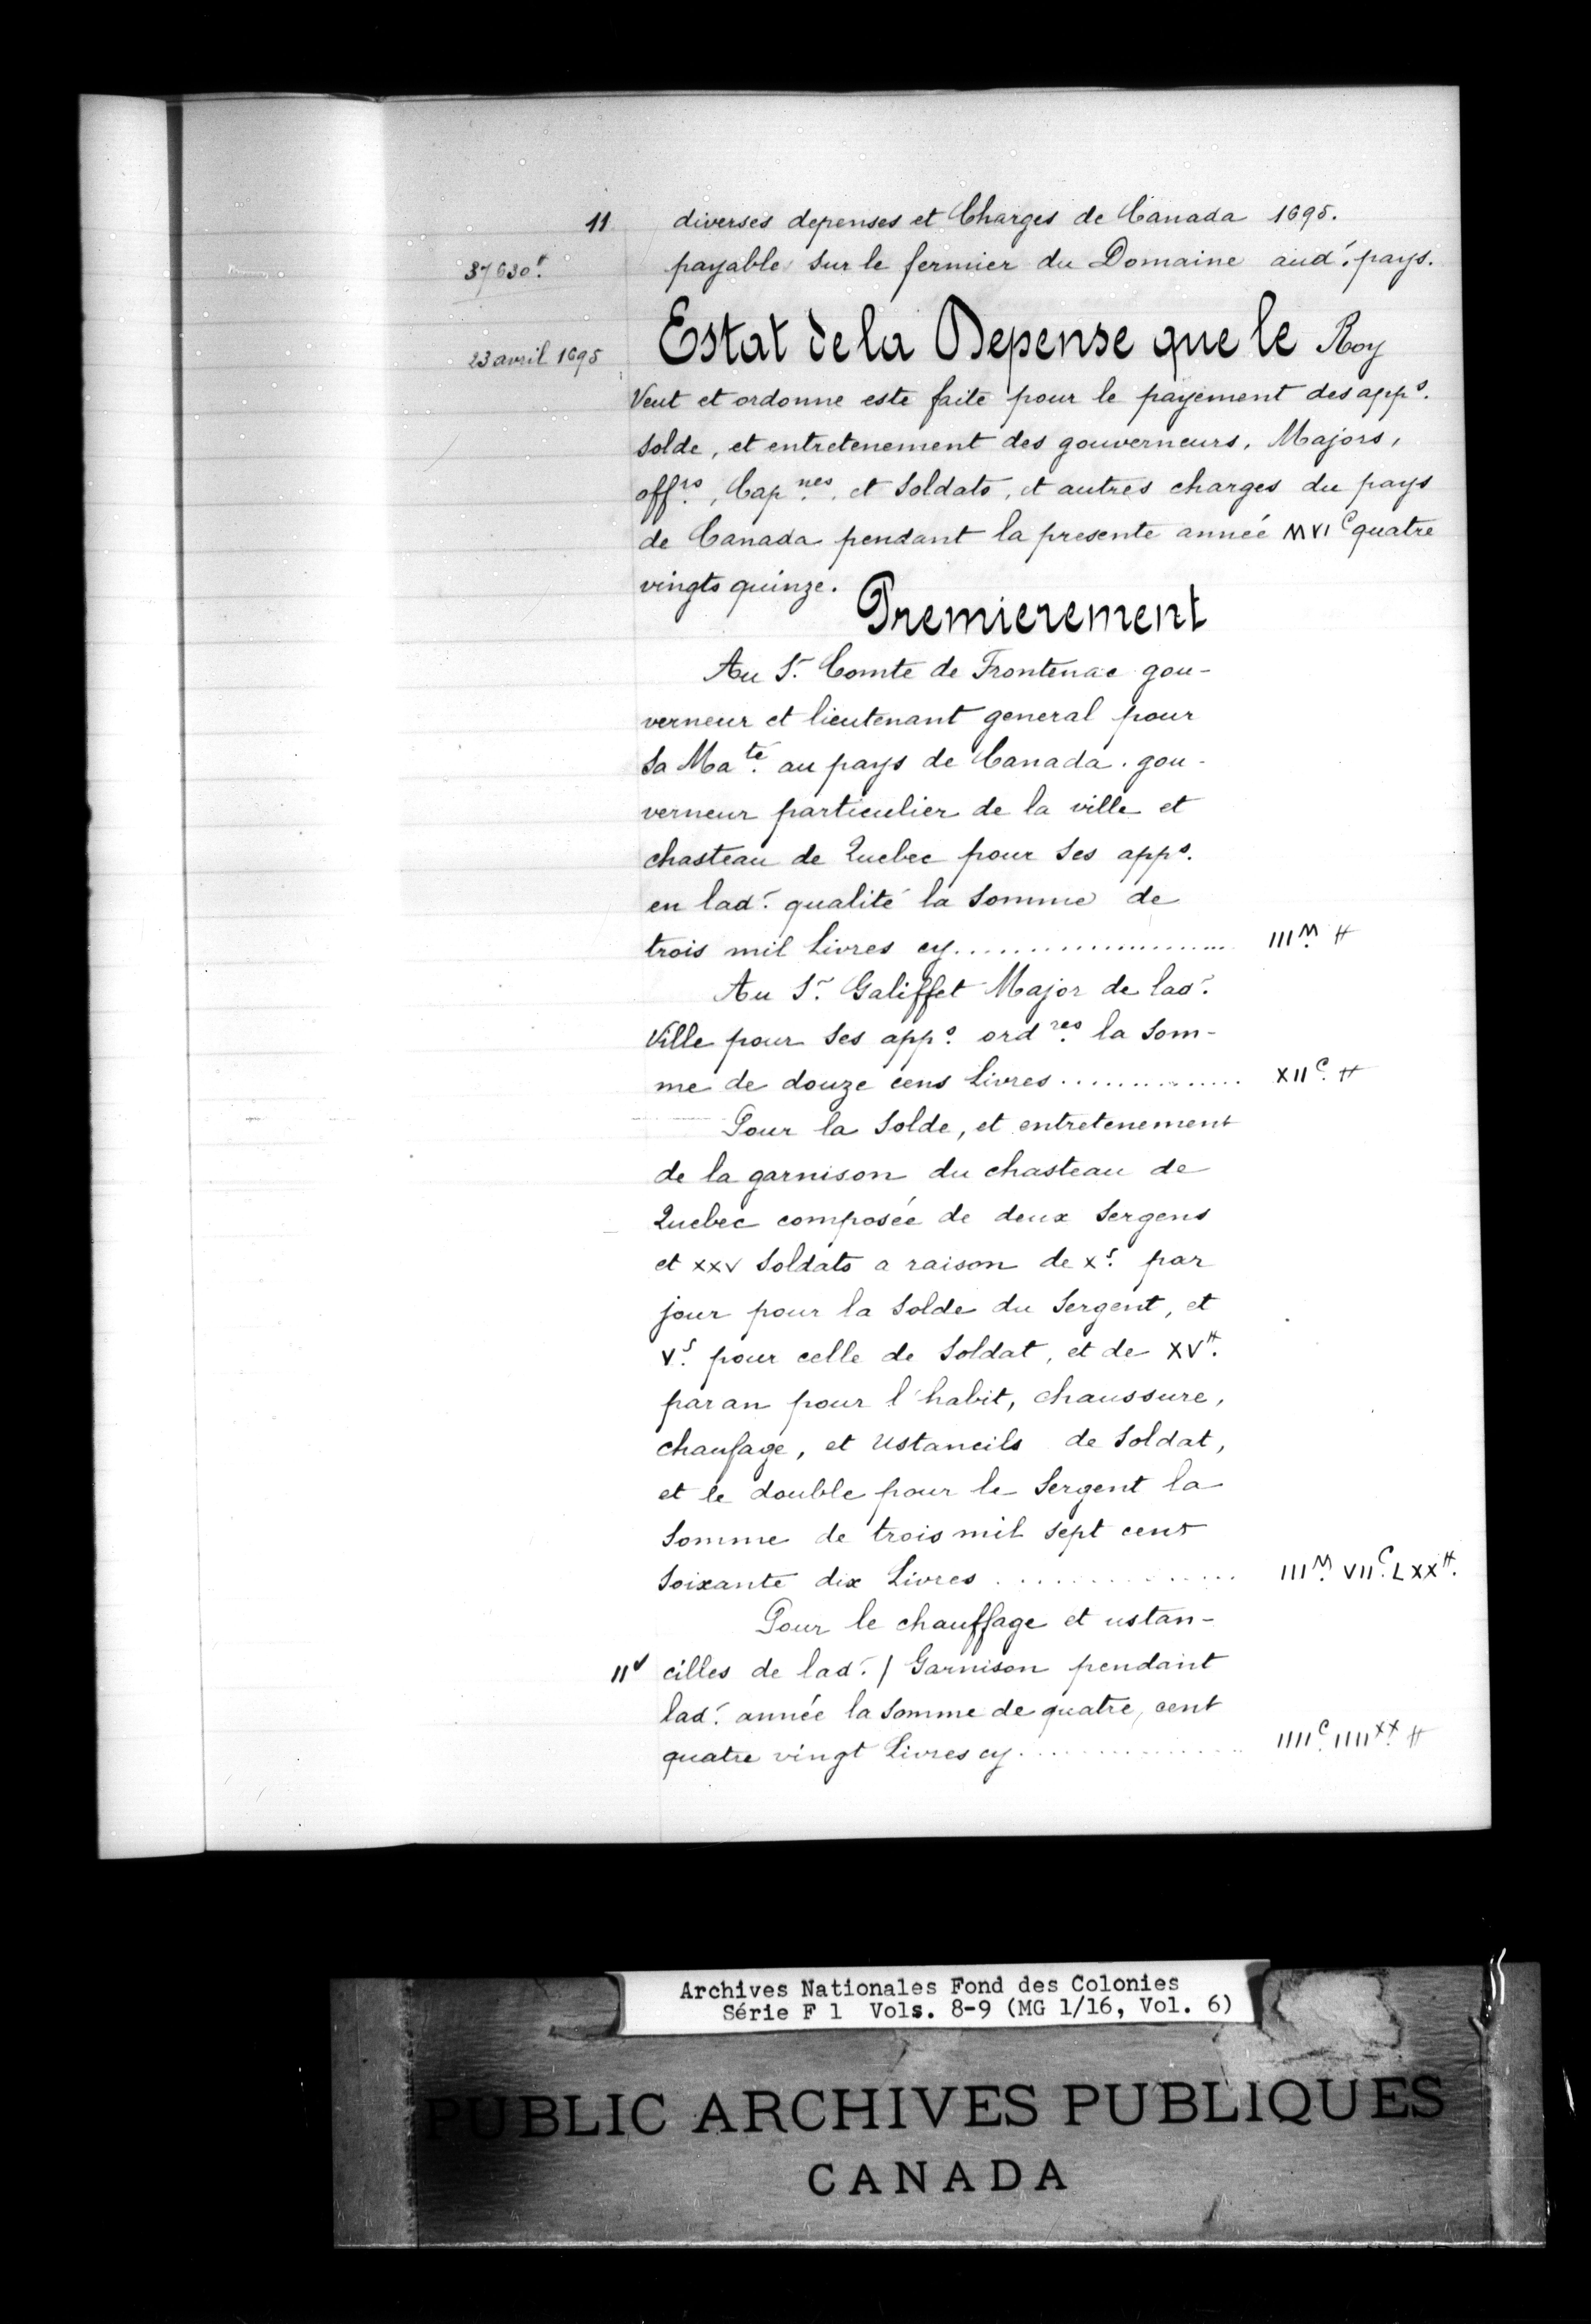 11 diverses depenses et Charges de Canada 1695.
37630ᵗᵗ. payable sur le fermier du Domaine aud.̃ pays.
23 avril 1695 Estat de la Depense que le Roy
Veut et ordonne este faite pour le payement des appˢ.
solde, et entretenement des gouverneurs, Majors,
offʳˢ, Capⁿᵉˢ, et Soldats, et autres charges du pays
de Canada pendant la presente année MVIᶜ quatre
vingts quinze.
Premierement
Au Sʳ. Comte de Frontenac gou-
verneur et lieutenant general pour
sa Maᵗᵉ. au pays de Canada. gou-
verneur particulier de la ville et
chasteau de Quebec pour ses appˢ.
en lad.̃ qualité la somme de
trois mil Livres cy..................... IIIᴹ. ᵗᵗ
Au Sʳ. Galiffet Major de lad.̃
Ville pour ses appˢ. ordʳᵉˢ. la som-
me de douze cens Livres .............. XIIᶜ. ᵗᵗ
Pour la Solde, et entretenement
de la garnison du chasteau de
Quebec composée de deux Sergens
et XXV Soldats a raison de Xˢ. par
jour pour la Solde du Sergent, et
Vˢ. pour celle de Soldat, et de XVᵗᵗ.
par an pour l'habit, chaussure,
chaufage, et Ustancils de Soldat,
et le double pour le Sergent la
Somme de trois mil sept cent
Soixante dix Livres .............. IIIᴹ. VIIᶜ. LXXᵗᵗ.
Pour le chauffage et ustan-
11ᵛ cilles de lad.̃ / Garnison pendant
lad.̃ année la Somme de quatre, cent
quatre vingt Livres cy .............. IIIIᶜ. IIIIˣˣ. ᵗᵗ
Archives Nationales Fond des Colonies
Série F 1 Vols. 8-9 (MG 1/16, Vol. 6)
PUBLIC ARCHIVES PUBLIQUES
CANADA